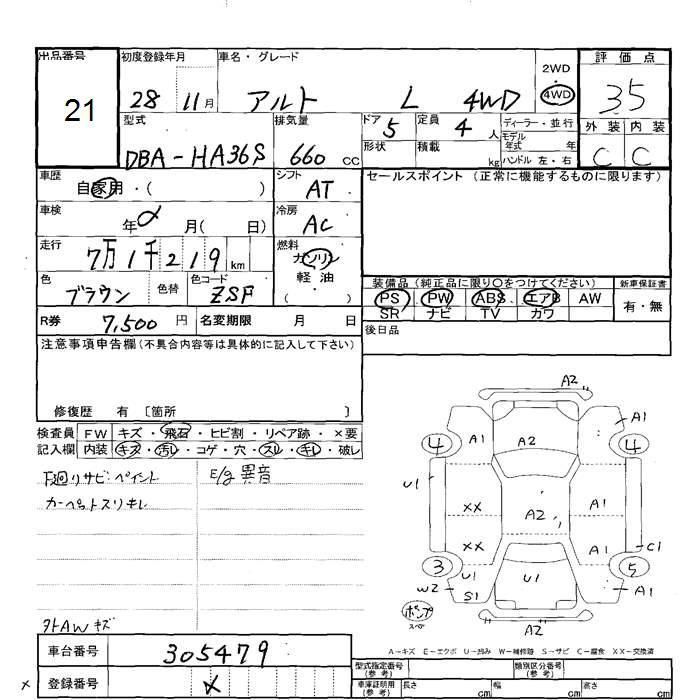 出品番号 21
初度登録年月 28 11月
車名・グレード アルト L 4WD
2WD
4WD
評価点 35
外装 内装
C C
型式 DBA-HA36S
排気量 660 cc
ドア 5
形状
定員 4人
積載 kg
ディーラー・並行
モデル年式 年
ハンドル 左・右
車歴 自家用・( )
シフト AT
車検 年 月( 日)
冷房 AC
走行 7万1千219km
燃料 ガソリン
軽油
( )
色 ブラウン 色替
色コード ZSF
R券 7,500円 名変期限 月 日
セールスポイント (正常に機能するものに限ります)
装備品(純正品に限り○をつけてください)
新車保証書
PS PW ABS エアB AW 有・無
SR ナビ TV カワ
後日品
注意事項申告欄(不具合内容等は具体的に記入して下さい)
修復歴 有 〔箇所 〕
検査員 FW キズ・飛石・ヒビ割・リペア跡・×要
記入欄 内装 キズ・汚レ・コゲ・穴・スレ・キレ・破レ
下廻りサビ:ペイント
カーペットスリキレ
E/g 異音
外AWキズ
A2
A1
4
A1
A2
4
U1
XX
A2
A1
XX
A1
C1
3
5
W2
U1
S1
U1
A1
ポンプ
スペア
A2
A-キズ E-エクボ U-凹み W-補修跡 S-サビ C-腐食 XX-交換済
車台番号 305479
登録番号 ×
×
型式指定番号(参考)
類別区分番号(参考)
車庫証明用(参考) 長さ cm 幅 cm 高さ cm